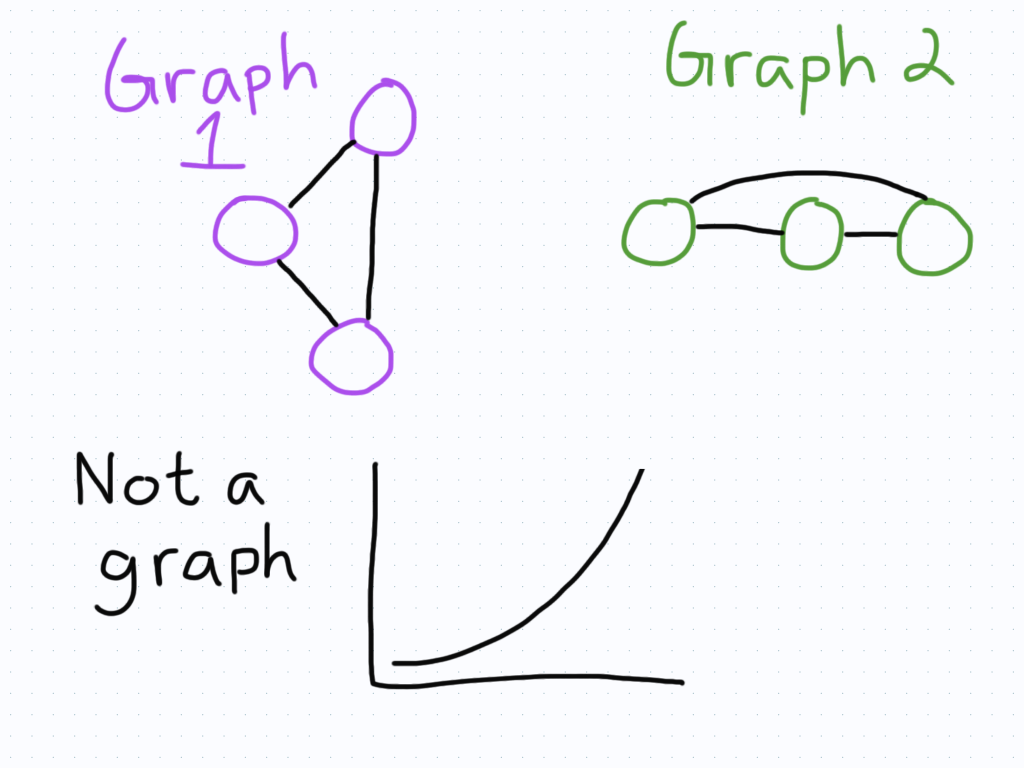 Graph
1
Graph 2
Not a
graph